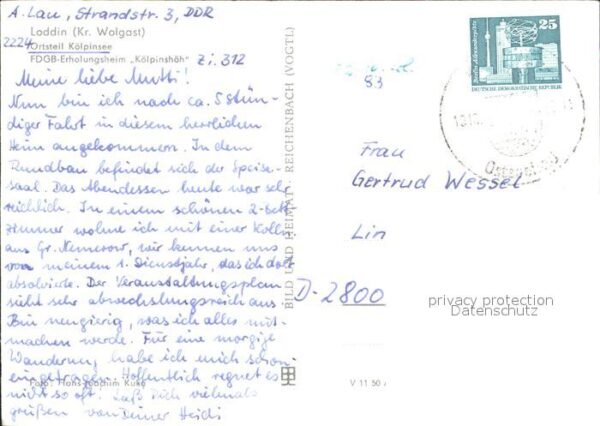 A. Lau, Strandstr. 3, DDR
Loddin (Kr. Wolgast)
2224 Ortsteil Kölpinsee
FDGB-Erholungsheim „Kölpinshöh" Zi. 312
Meine liebe Mutti!
Nun bin ich nach ca. 5 stün-
diger Fahrt in diesem herrlichen
Heim angekommen. In dem
Rundbau befindet sich der Speise-
saal. Das Abendessen heute war seh
reichlich. In einem schönen 2-Bett-
zimmer wohne ich mit einer Kolln.
aus Gr. Nemerow, wir kennen uns
von meinem 1. Dienstjahr, das ich dort
absolvierte. Der Veranstaltungsplan
sieht sehr abwechslungsreich aus.
Bin neugierig, was ich alles mit-
machen werde. Für eine morgige
Wanderung habe ich mich schon
eingetragen. Hoffentlich regnet es
Foto: Hans-Joachim Kuke
nicht so oft! Laß Dich vielmals
grüßen von Deiner Heidi
BILD UND HEIMAT · REICHENBACH (VOGTL)
V 11 50
83
25
DEUTSCHE DEMOKRATISCHE REPUBLIK
Frau
Gertrud Wessel
D-2800
privacy protection
Datenschutz